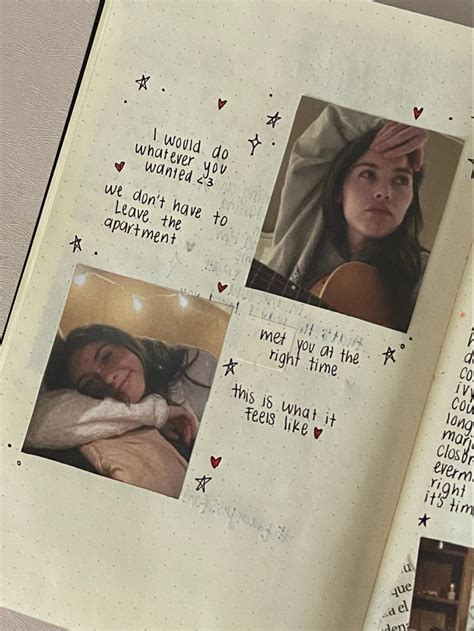 I would do
whatever you
wanted <3
we don't have to
Leave the
apartment
met you at the
right time
this is what it
Feels like
closur
everm
right
it's tim
que
a el